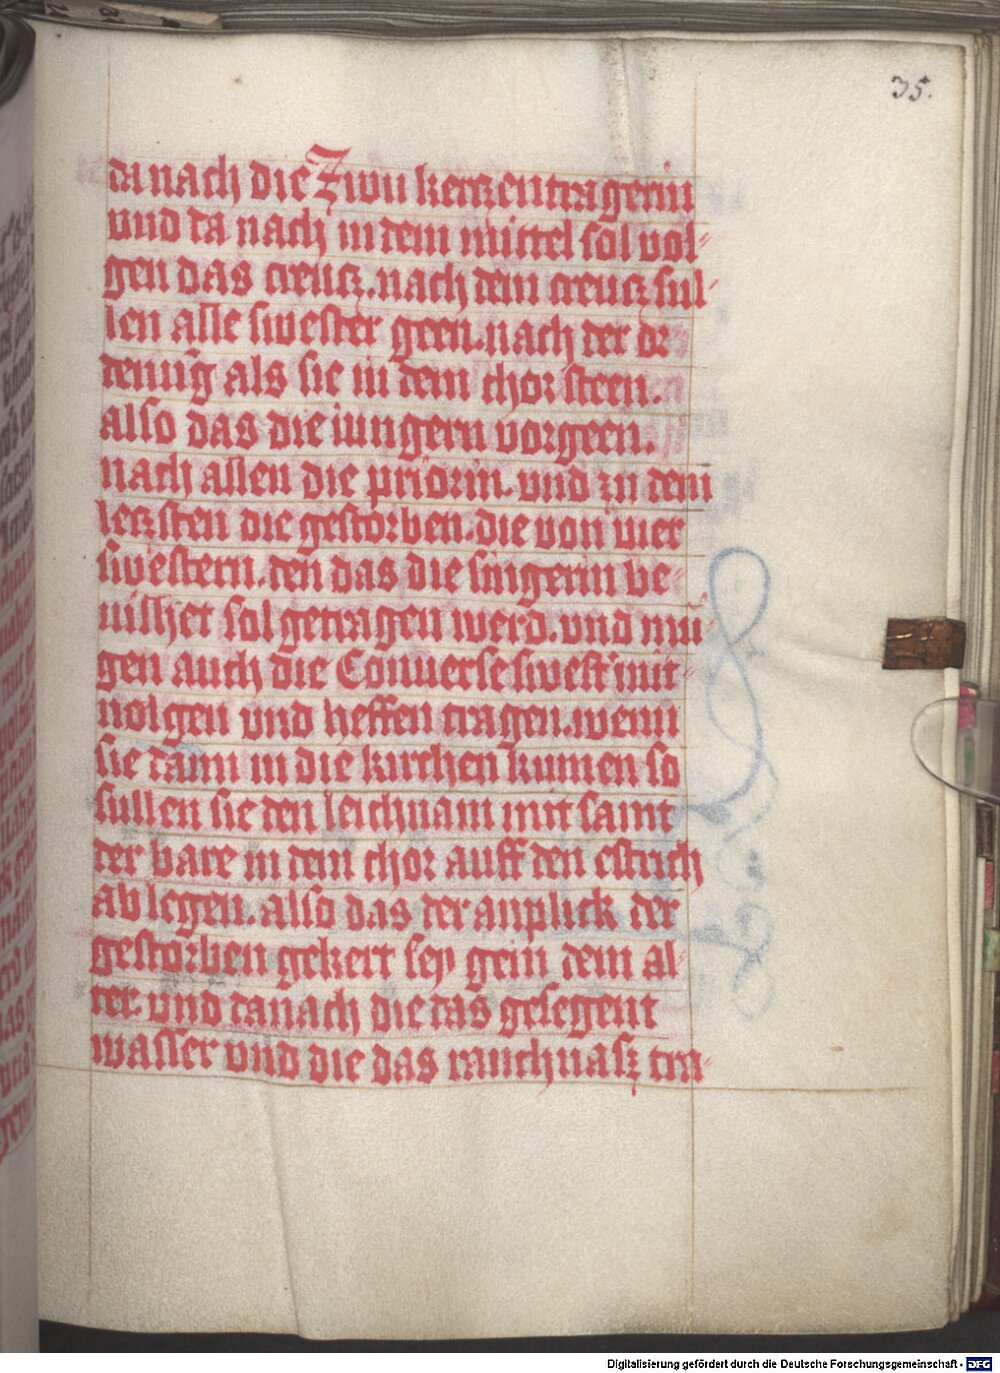 35.
da nach die Zwu kertzentragerin
vnd da nach in dem mittel sol vol-
gen das creutz. nach dem creutz sul-
len alle swester geen. nach der or
denu̅g als sie in dem chor steen.
also das die iungern vorgeen.
nach allen die priorin. vnd zu dem
letzsten die gestorben. die von vier
swestern. den das die singerin be-
uilhet sol getragen werd. vnd mu-
gen auch die Conuerse swest' mit-
uolgen vnd heffen tragen. wenn
sie dann in die kirchen kumen so
sullen sie den leichnam mit samt
der bare in dem chor auff den estrich
ab legen. also das der anplick der
gestorben gekert sey gein dem al
ter. vnd danach die das gesegent
wasser vnd die das rauchuasz tra-
Digitalisierung gefördert durch die Deutsche Forschungsgemeinschaft - DFG